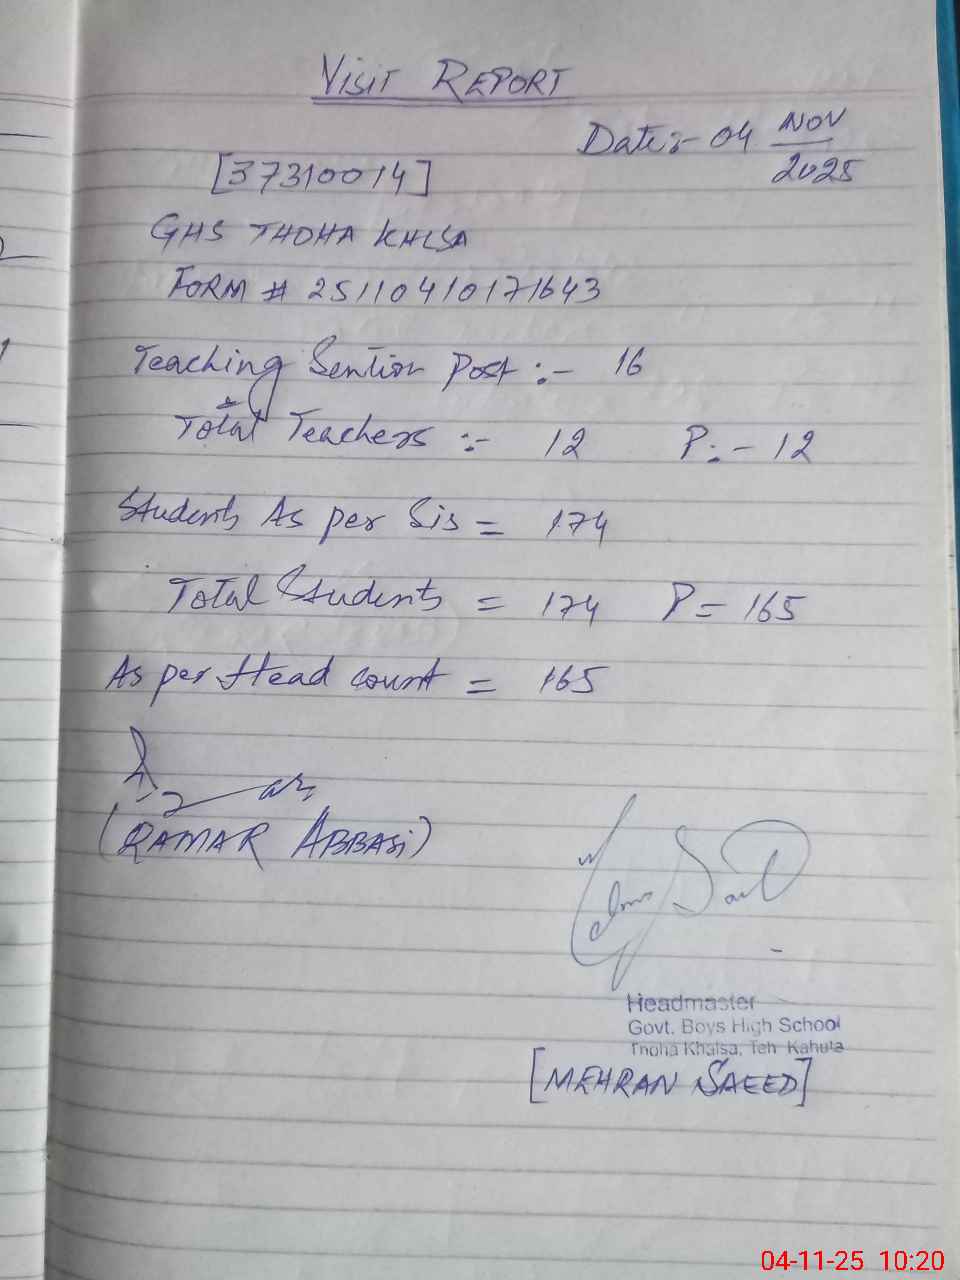 VISIT REPORT
Date:- 04 NOV
2025
[37310014]
GHS THOHA KHLSA
FORM # 25110410171643
Teaching Sention Post :- 16
Total Teachers :- 12 P:- 12
Students As per Sis = 174
Total Students = 174 P = 165
As per Head count = 165
(QAMAR ABBASi)
Headmaster
Govt. Boys High School
Thoha Khalsa, Teh Kahuta
[MEHRAN SAEED]
04-11-25 10:20